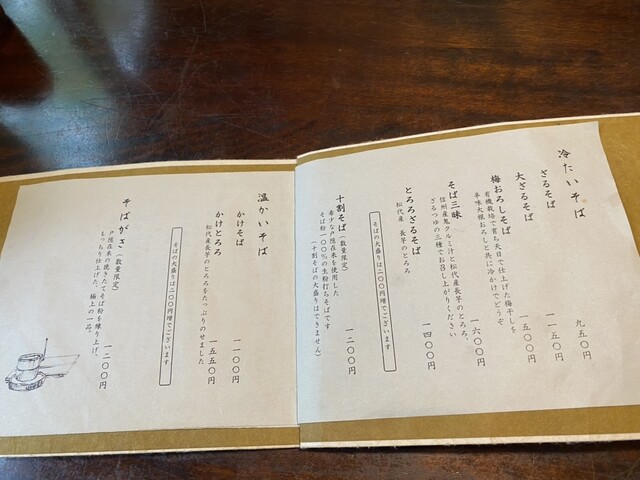 冷たいそば
ざるそば 九五〇円
大ざるそば 一一五〇円
梅おろしそば 一五〇〇円
有機栽培で育ち天日で仕上げた梅干しを
辛味大根おろしと共に冷かけでどうぞ
そば三昧 一六〇〇円
信州産鬼クルミ汁と松代産長芋のとろろ、
ざるつゆの三種でお召し上がりください
とろろざるそば 一四〇〇円
松代産 長芋のとろろ
そばの大盛りは二〇〇円増でございます
十割そば(数量限定) 一二〇〇円
希少な戸隠在来を使用した
そば粉一〇〇%の生粉打ちそばです
(十割そばの大盛りはできません)
温かいそば
かけそば 一一〇〇円
かけとろろ 一五五〇円
松代産長芋のとろろをたっぷりのせました
そばの大盛りは二〇〇円増でございます
そばがき(数量限定) 一二〇〇円
戸隠在来の挽きたてそば粉を練り上げ、
もっちり仕上げた、極上の一品。